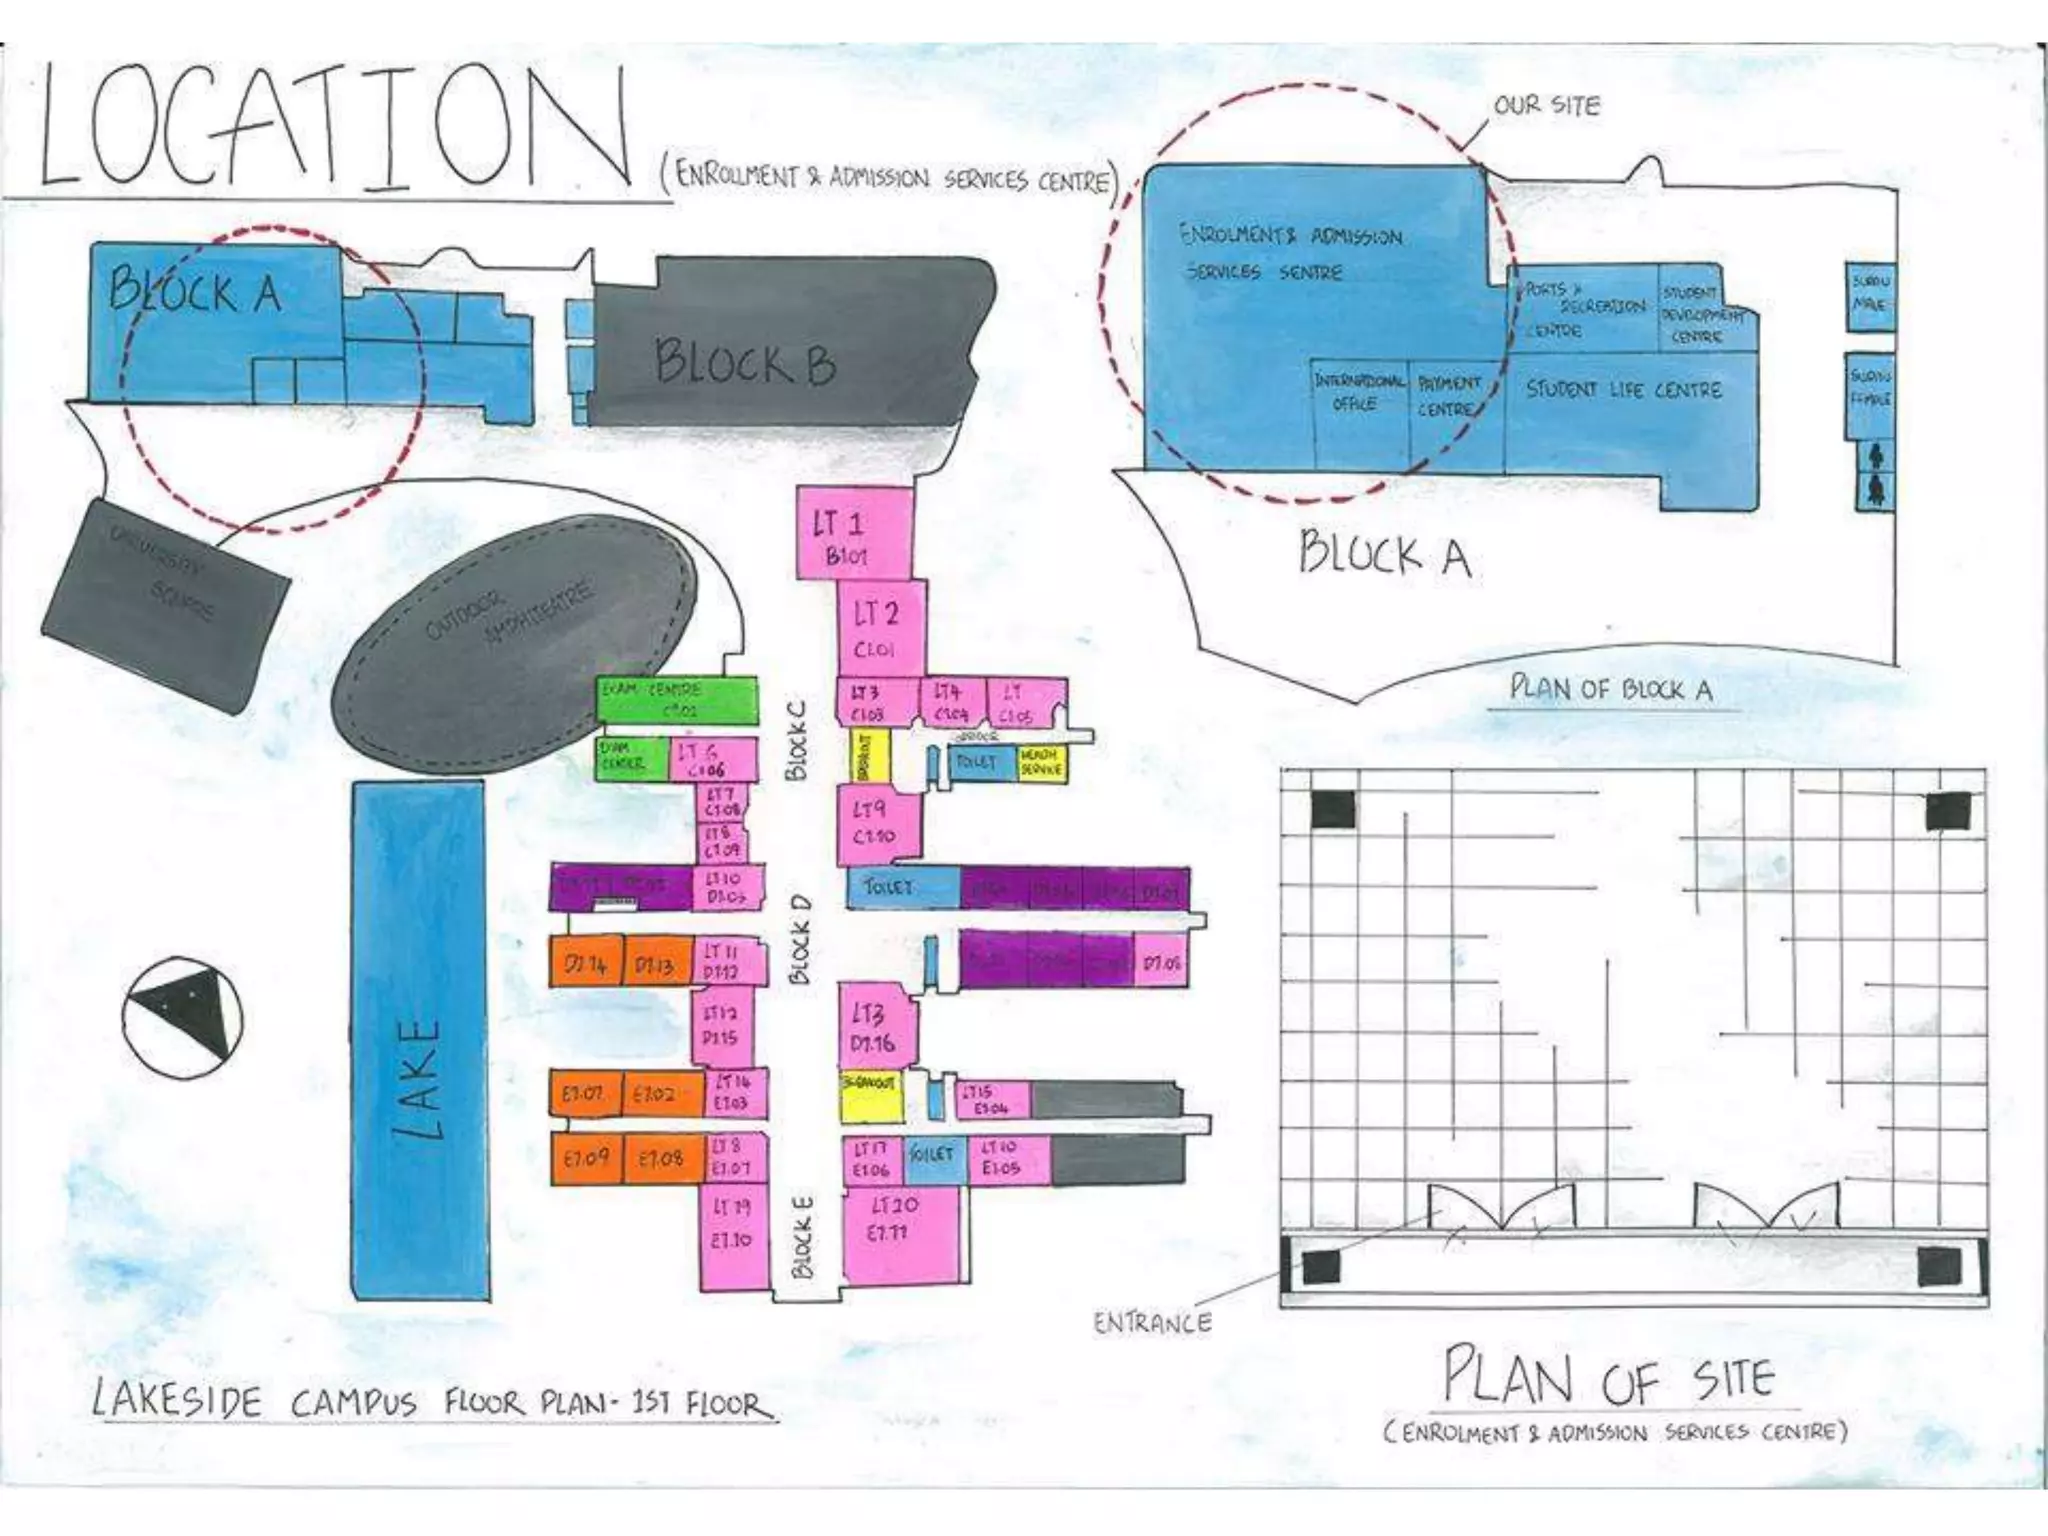 LOCATION
(ENROLLMENT & ADMISSION SERVICES CENTRE)
BLOCK A
BLOCK B
UNIVERSITY
SQUARE
OUTDOOR
AMPHITEATRE
LT 1
B1.01
LT 2
C1.01
EXAM CENTRE
C1.02
LT3
C1.03
LT4
C1.04
LT
C1.05
BLOCK C
EXAM
CENTER
LT 6
C1.06
BREAKOUT
BRIDGE
TOILET
HEALTH
SERVICE
LT7
C1.08
LT8
C1.09
LT9
C1.10
LT10
D1.03
TOILET
BLOCK D
D1.14
D1.13
LT 11
D1.12
D1.08
LT12
D1.15
LT3
D1.16
E1.01
E1.02
LT14
E1.03
BREAKOUT
LT15
E1.04
E1.09
E1.08
LT 8
E1.07
LT17
E1.06
TOILET
LT10
E1.05
LT 19
E1.10
LT20
E1.11
BLOCK E
LAKE
LAKESIDE CAMPUS FLOOR PLAN- 1ST FLOOR
OUR SITE
ENROLMENT & ADMISSION
SERVICES SENTRE
PORTS &
RECREATION
CENTRE
STUDENT
DEVELOPMENT
CENTRE
SURAU
MALE
INTERNATIONAL
OFFICE
PAYMENT
CENTRE
STUDENT LIFE CENTRE
SURAU
FEMALE
BLOCK A
PLAN OF BLOCK A
ENTRANCE
PLAN OF SITE
(ENROLMENT & ADMISSION SERVICES CENTRE)